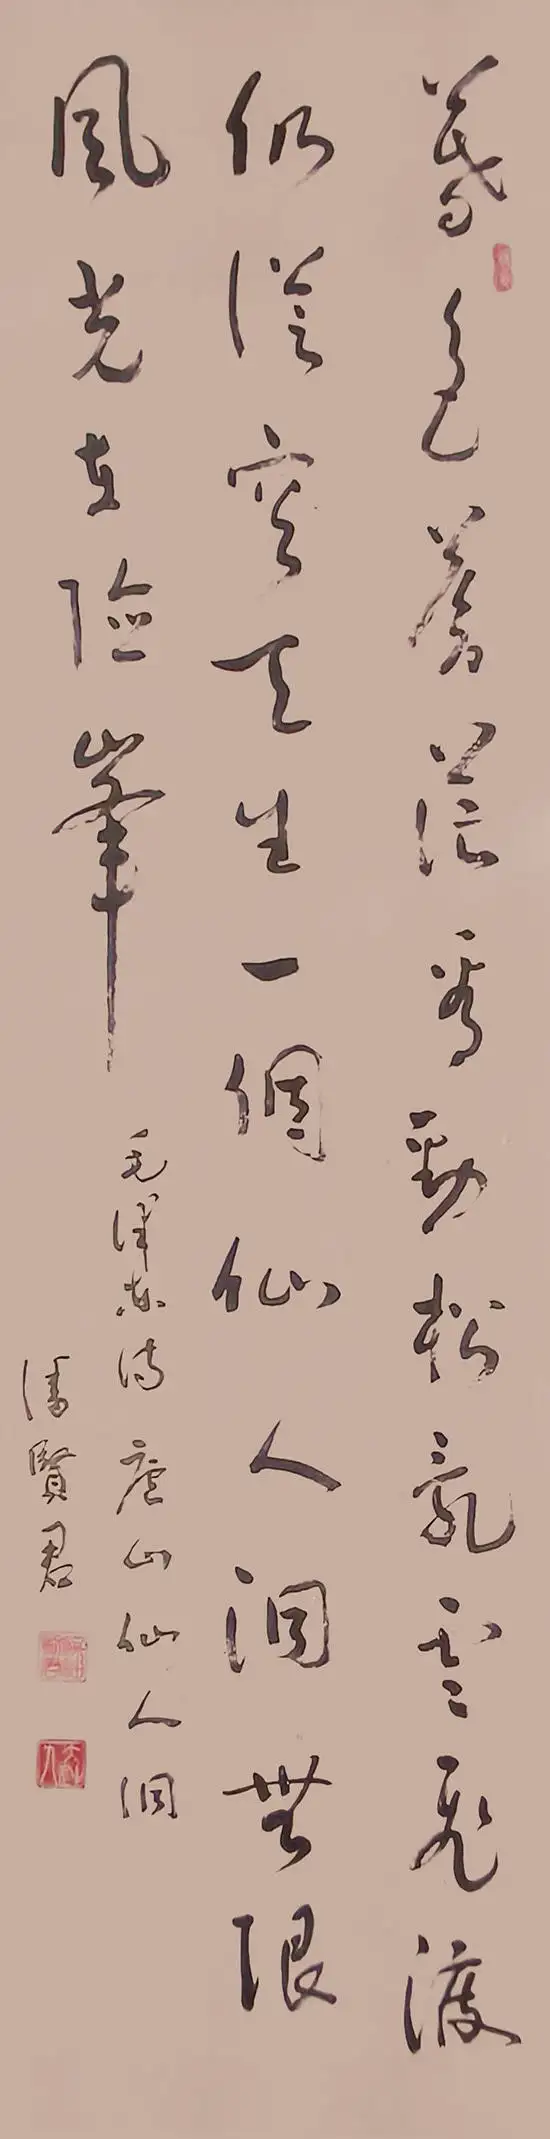 暮色蒼茫看勁松亂雲飛渡
仍從容天生一個仙人洞無限
風光在險峯
毛澤東詩廬山仙人洞
賢君